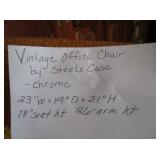 Vintage Office Chair
"by" Steele Case
- chrome
23"W x 19"D x 31"H
18" seat ht 26" arm ht